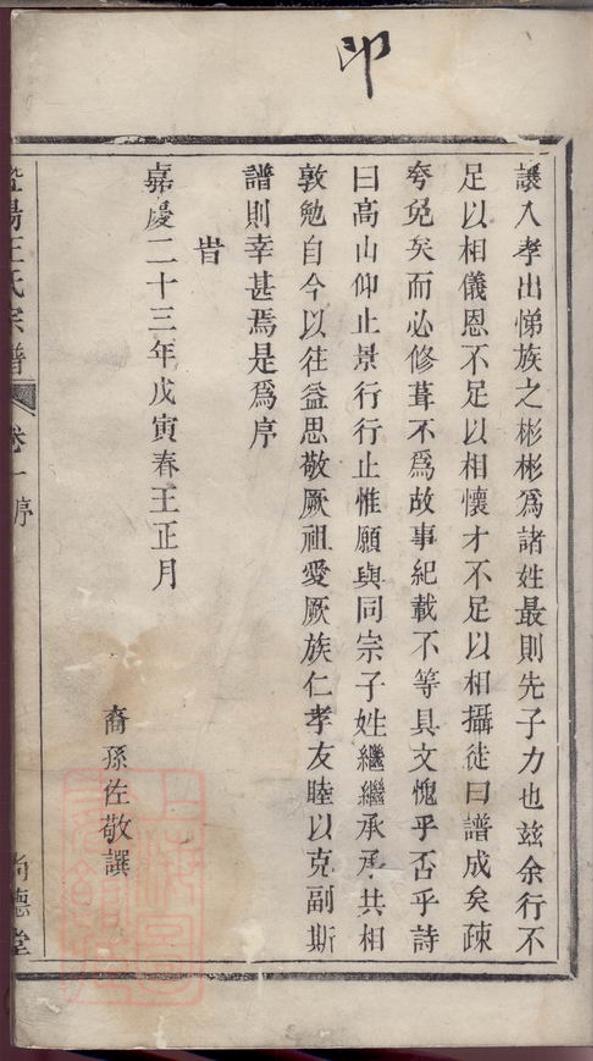 印
讓入孝出悌族之彬彬爲諸姓最則先子力也兹余行不
足以相儀恩不足以相懷才不足以相攝徒曰譜成矣疎
夸免矣而必修葺不爲故事紀載不等具文愧乎否乎詩
曰高山仰止景行行止惟願與同宗子姓繼繼承承共相
敦勉自今以往益思敬厥祖愛厥族仁孝友睦以克副斯
譜則幸甚焉是爲序
旹
嘉慶二十三年戊寅春王正月
裔孫佐敬譔
暨陽王氏宗譜 卷一 序 尚德堂